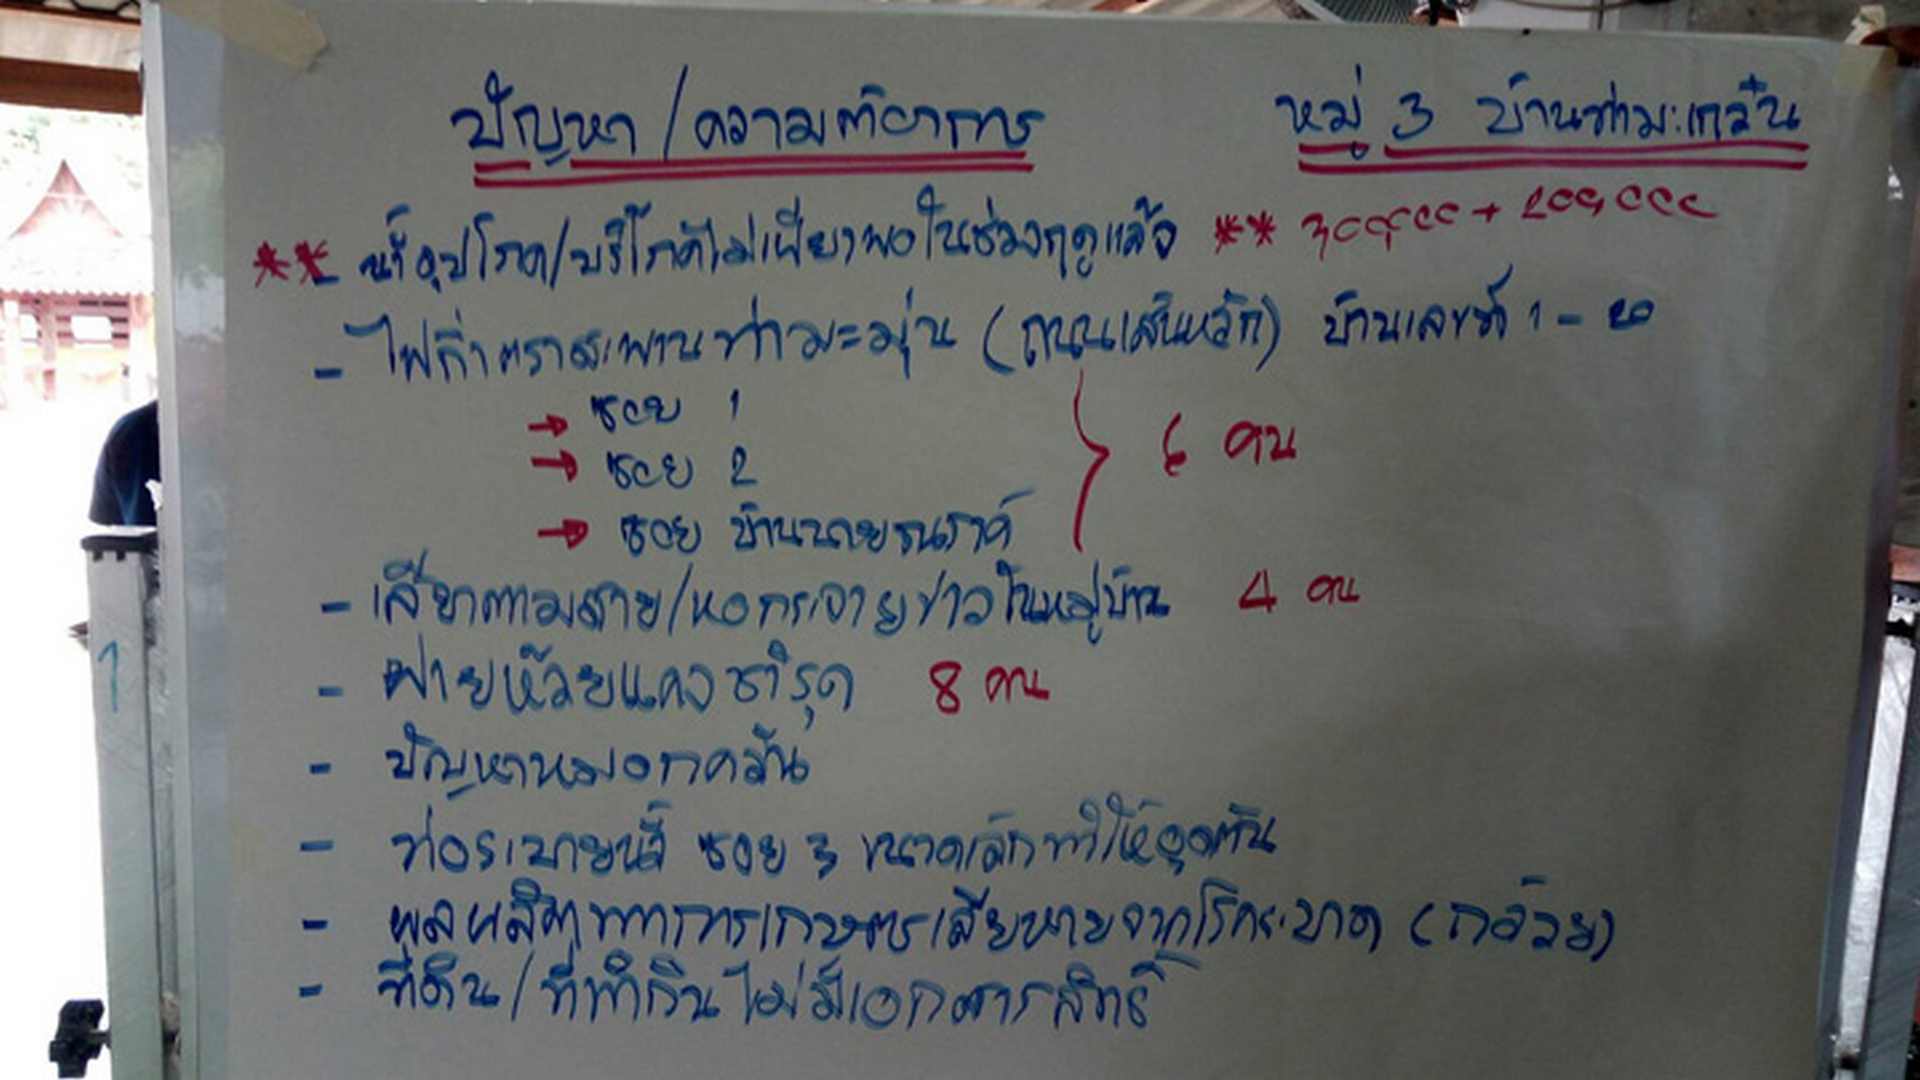 ปัญหา/ความต้องการ หมู่ 3 บ้านท่ามะเกลือ
** - น้ำอุปโภค/บริโภคไม่เพียงพอในช่วงฤดูแล้ง **
- ไฟกิ่งตรงสะพานท่ามะมุ่น (ถนนเส้นหลัก) บ้านเลขที่ 1 -
→ ซอย 1
→ ซอย 2
→ ซอย บ้านนาย
6 คน
- เสียงตามสาย/หอกระจายข่าวในหมู่บ้าน 4 คน
- ฝายห้วยแดงชำรุด 8 คน
- ปัญหาหมอกควัน
- ท่อระบายน้ำ ซอย 3 ขนาดเล็กทำให้อุดตัน
- ผลผลิตทางการเกษตรเสียหายจากโรคระบาด (กล้วย)
- ที่ดิน/ที่ทำกินไม่มีเอกสารสิทธิ์